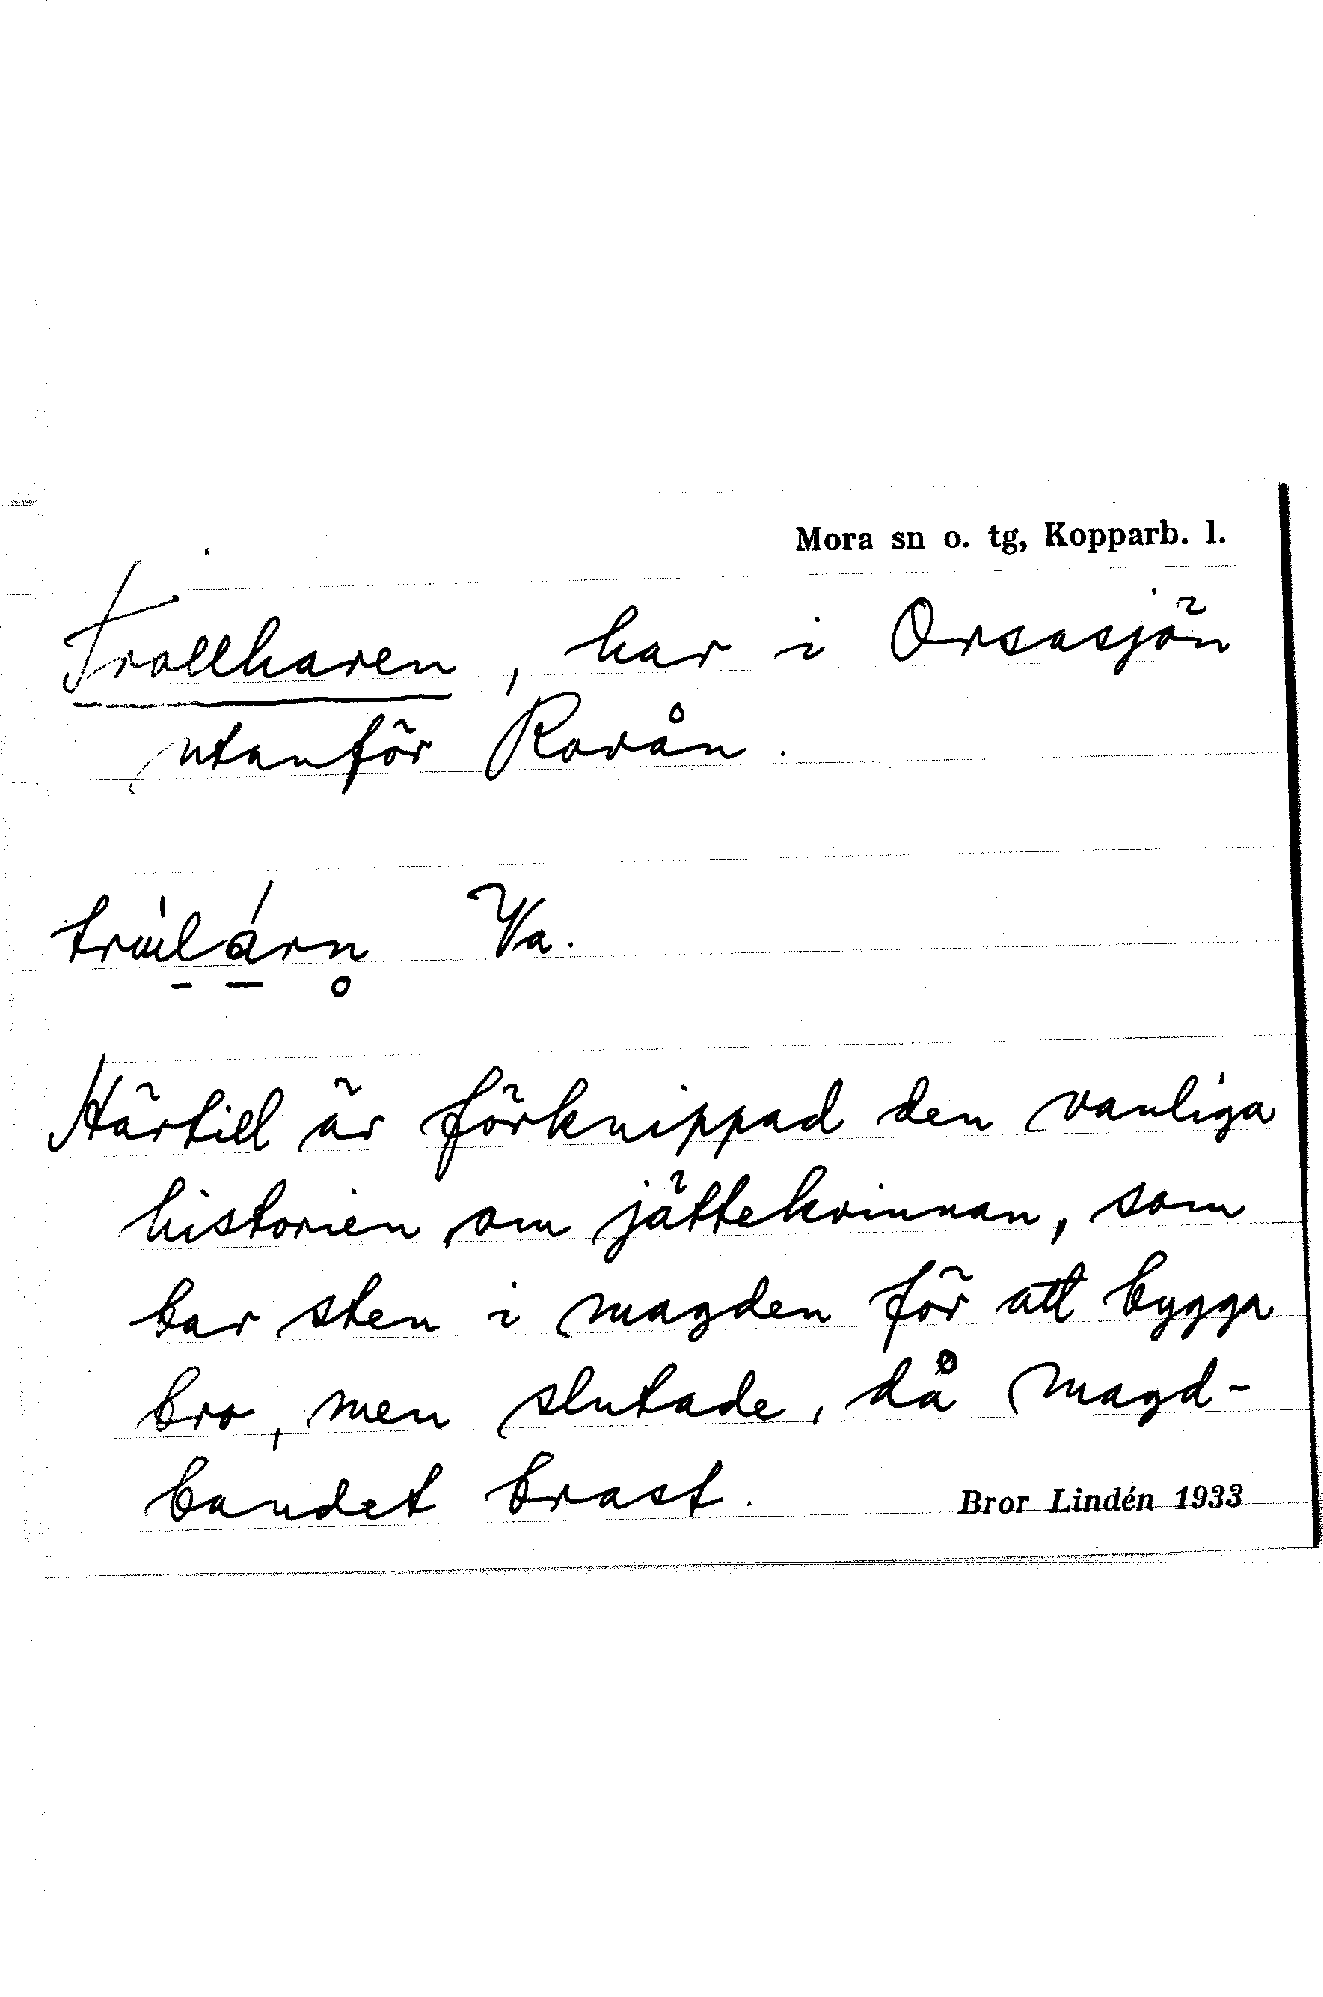 Mora sn o. tg, Kopparb. l.
Trollharen, har i Orsasjön
utanför Rovån.
Va.
Härtill är förknippad den vanliga
historien om jättekvinnan, som
bar sten i magden för att bygga
bro, men slutade, då magd-
bandet brast.
Bror Lindén 1933